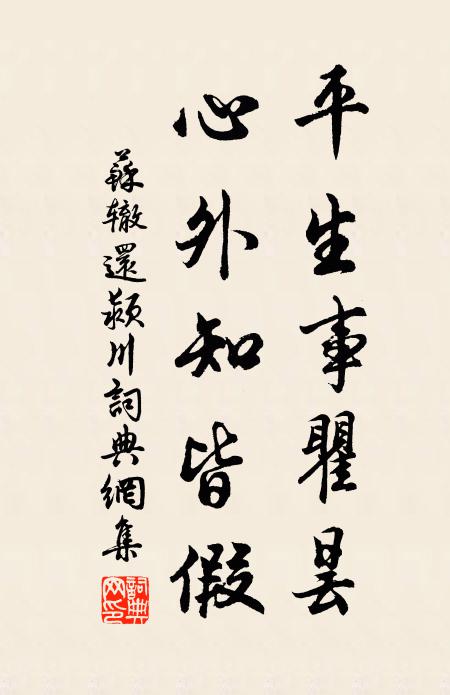 平生事瞿曇
心外知皆假
蘇辙還潁川詞典網集
詞典网印